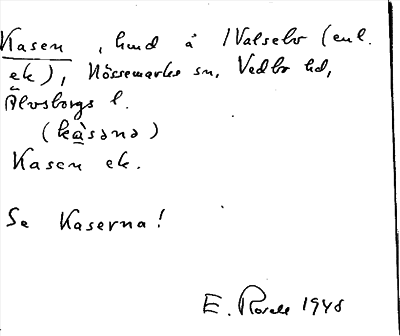 Kasen, hmd å 1 Valsebo (enl.
ek), Nössemarks sn, Vedbo hd,
Älvsborgs l.
(kàsənə)
Kasen ek.
Se Kaserna!
E. Rosell 1948